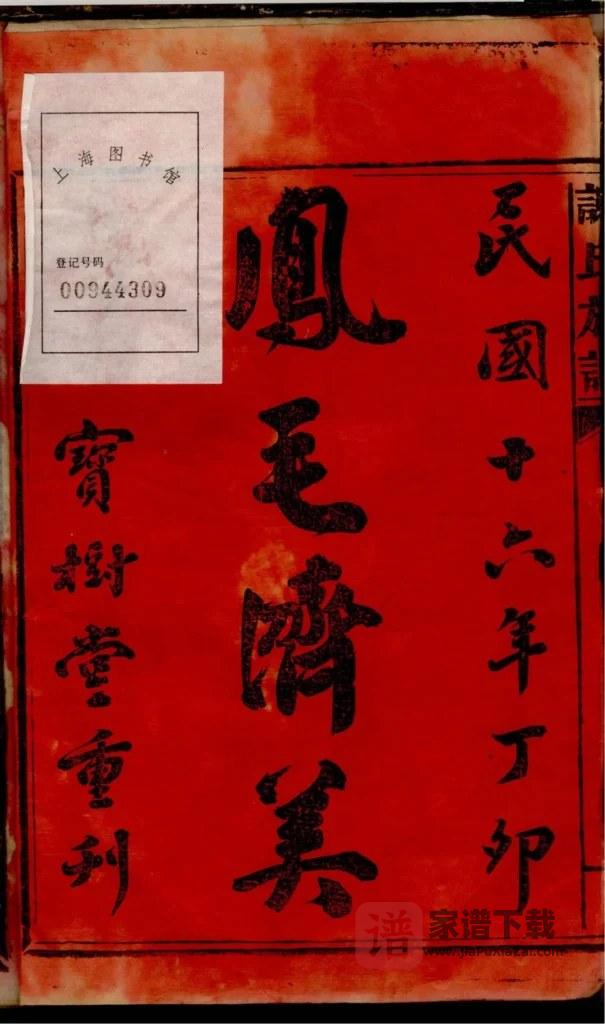 民國十六年丁卯
鳳毛濟美
寶樹堂重刋
上海图书馆
登记号码
00944309
氏族譜
家谱下载
www.jiapuxiazai.com
谱